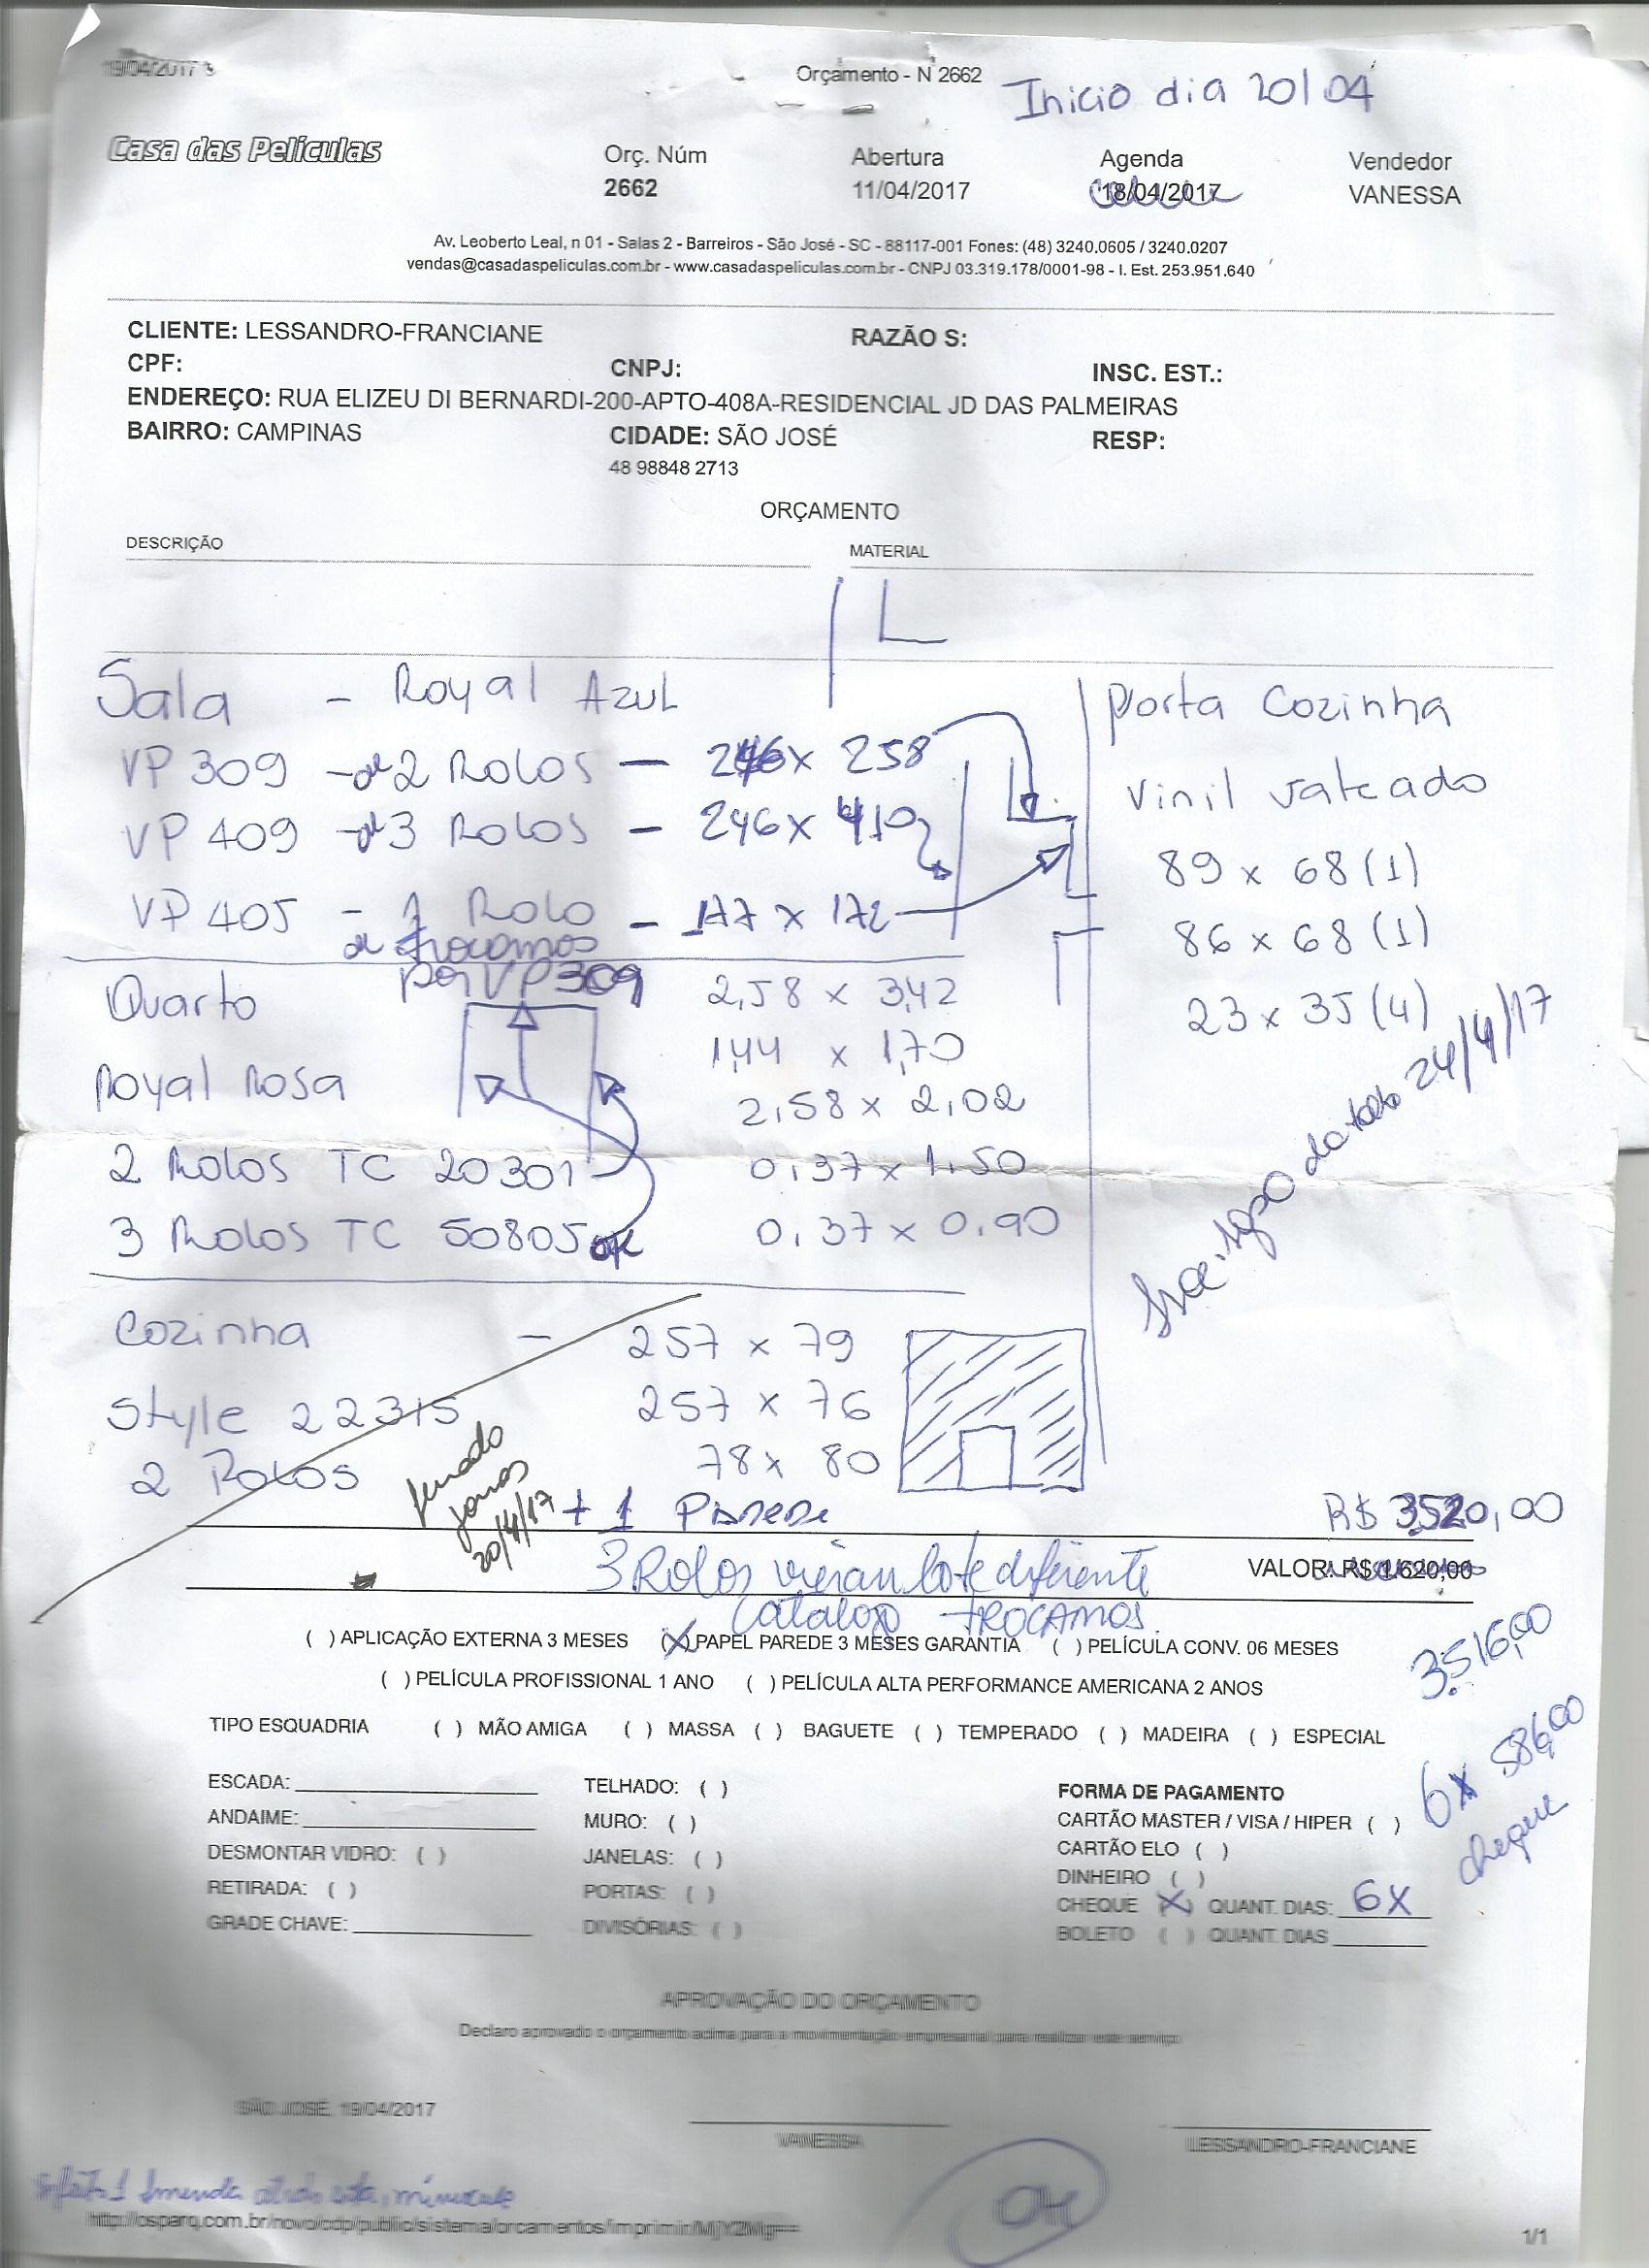 19/04/2017
Orçamento - N 2662
Inicio dia 20/04
Casa das Películas
Orç. Núm Abertura Agenda Vendedor
2662 11/04/2017 18/04/2017 VANESSA
Av. Leoberto Leal, n 01 - Salas 2 - Barreiros - São José - SC - 88117-001 Fones: (48) 3240.0605 / 3240.0207
vendas@casadaspeliculas.com.br - www.casadaspeliculas.com.br - CNPJ 03.319.178/0001-98 - I. Est. 253.951.640
CLIENTE: LESSANDRO-FRANCIANE RAZÃO S:
CPF: CNPJ: INSC. EST.:
ENDEREÇO: RUA ELIZEU DI BERNARDI-200-APTO-408A-RESIDENCIAL JD DAS PALMEIRAS
BAIRRO: CAMPINAS CIDADE: SÃO JOSÉ RESP:
48 98848 2713
ORÇAMENTO
DESCRIÇÃO MATERIAL
Sala - Royal Azul
VP 309 - 2 Rolos - 246 x 258
VP 409 - 3 Rolos - 246 x 410
VP 405 - 1 Rolo - 177 x 172
trocamos
por VP 309
Porta Cozinha
Vinil Jateado
89 x 68 (1)
86 x 68 (1)
23 x 35 (4)
24/4/17
Quarto 2,58 x 3,42
1,44 x 1,70
Royal Rosa 2,58 x 2,02
2 Rolos TC 20301 0,37 x 1,50
3 Rolos TC 50805 ok 0,37 x 0,90
Cozinha - 257 x 79
Style 22315 257 x 76
2 Rolos 78 x 80
20/4/17
+ 1 Parede
R$ 3520,00
3 Rolos vieram lote diferente
VALOR: R$ 1.620,00
catalogo TROCAMOS.
( ) APLICAÇÃO EXTERNA 3 MESES (X) PAPEL PAREDE 3 MESES GARANTIA ( ) PELÍCULA CONV. 06 MESES
( ) PELÍCULA PROFISSIONAL 1 ANO ( ) PELÍCULA ALTA PERFORMANCE AMERICANA 2 ANOS
3.516,00
TIPO ESQUADRIA ( ) MÃO AMIGA ( ) MASSA ( ) BAGUETE ( ) TEMPERADO ( ) MADEIRA ( ) ESPECIAL
6x 586,00
cheque
ESCADA: TELHADO: ( ) FORMA DE PAGAMENTO
ANDAIME: MURO: ( ) CARTÃO MASTER / VISA / HIPER ( )
DESMONTAR VIDRO: ( ) JANELAS: ( ) CARTÃO ELO ( )
RETIRADA: ( ) PORTAS: ( ) DINHEIRO ( )
GRADE CHAVE: DIVISÓRIAS: ( ) CHEQUE (X) QUANT. DIAS: 6X
BOLETO ( ) QUANT. DIAS
APROVAÇÃO DO ORÇAMENTO
Declaro aprovado o orçamento acima para a movimentação empresarial para realizar este serviço
SÃO JOSÉ, 19/04/2017
VANESSA LESSANDRO-FRANCIANE
OK
http://osparq.com.br/novo/cdp/public/sistema/orcamentos/imprimir/MjY2Mg==
1/1